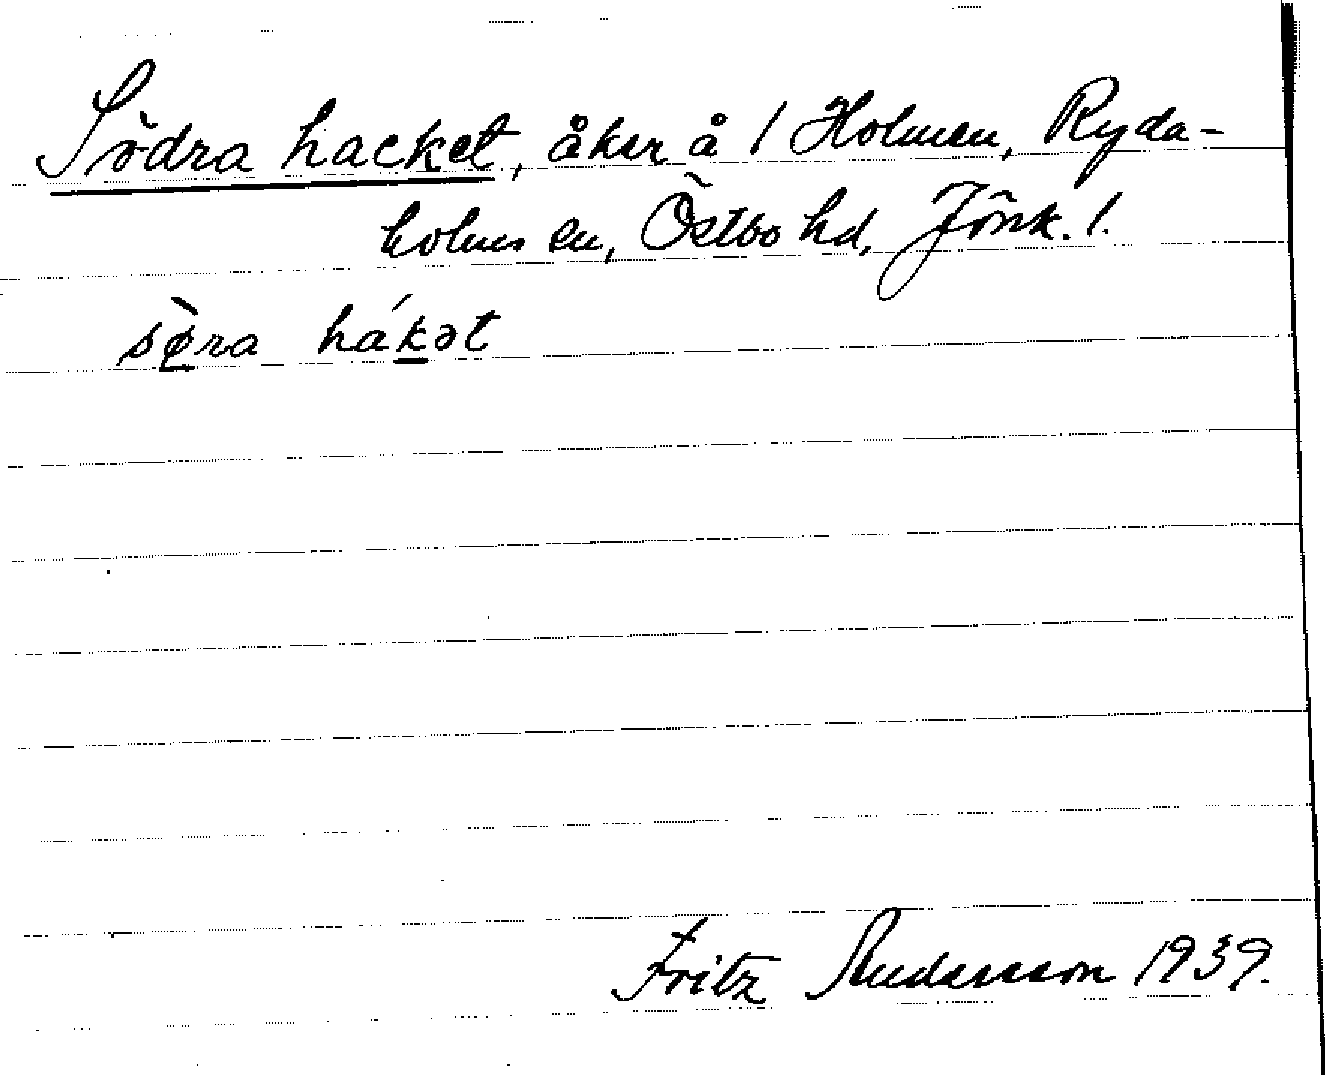 Södra hacket, åker å 1 Holmen, Ryda-
holms sn, Östbo hd, Jönk. l.
sø̀ra hákət
Fritz Andersson 1939.